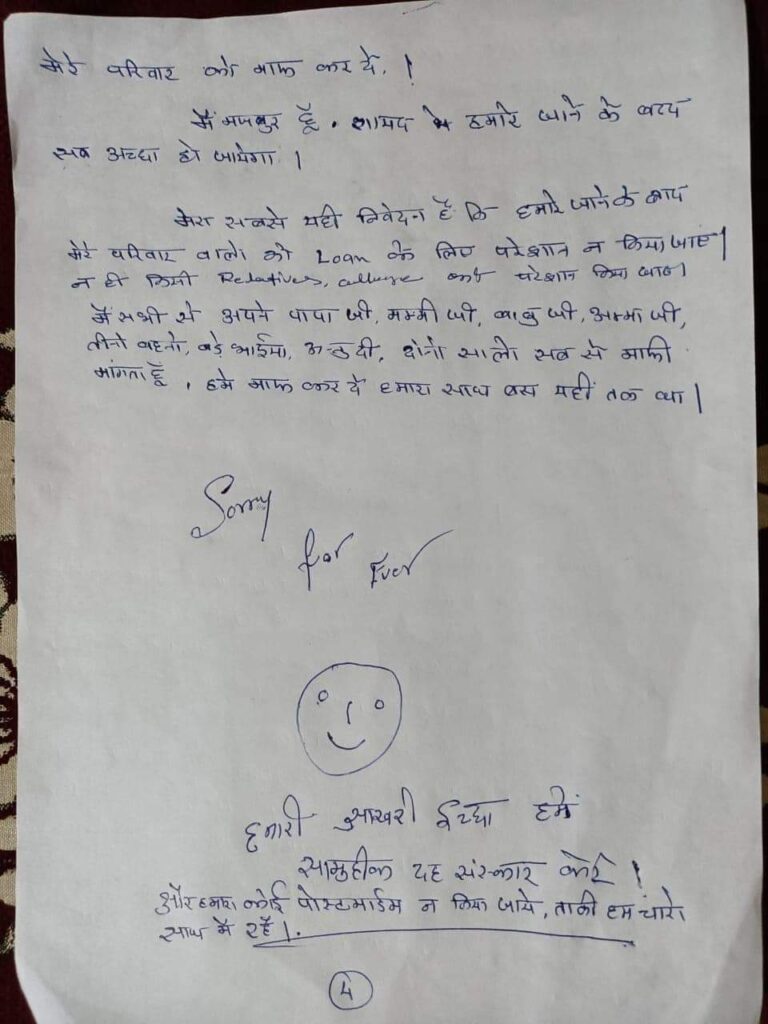 मेरे परिवार को माफ कर दें, !
मैं मजबुर हूँ . शायद हमारे जाने के बाद
सब अच्छा हो जायेगा ।
मेरा सबसे यही निवेदन है कि हमारे जाने के बाद
मेरे परिवार वालो को Loan के लिए परेशान न किया जाए।
न ही किसी Relatives, को परेशान किया जाए।
मैं सभी से अपने पापा जी, मम्मी जी, बाबु जी, अम्मा जी,
तीनो बहनो, बड़े भाईसा, दोनो सालो सब से माफी
मांगता हूँ . हमे माफ कर दें हमारा साथ बस यहीं तक था ।
Sorry
for Ever
हमारी आखरी ईच्छा हमें
सामुहीक दाह संस्कार करें !
और हमारा कोई पोस्टमार्डम न किया जाये, ताकी हम चारो
साथ में रहें।.
4